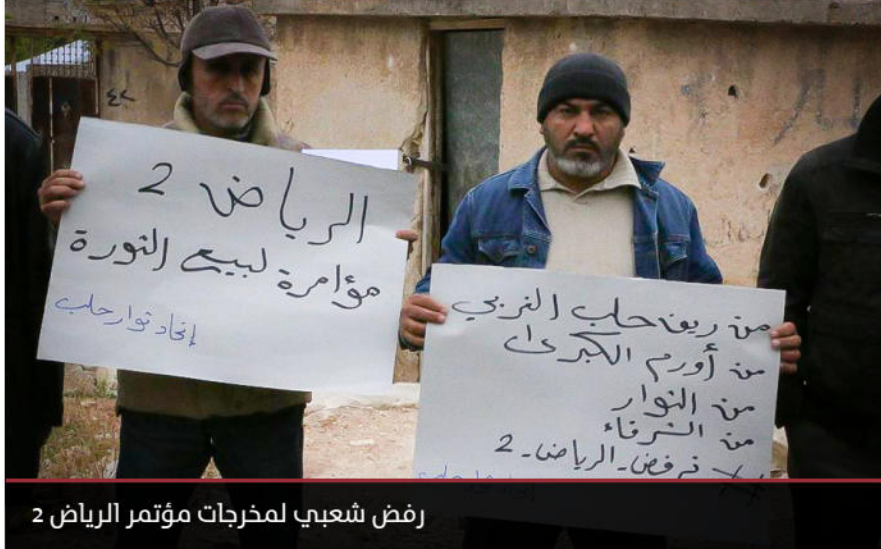 الرياض 2
مؤامرة لبيع الثورة
إتحاد ثوار حلب
من ريف حلب الغربي
من أورم الكبرى
من الثوار
من الشرفاء
نرفض_الرياض_2
رفض شعبي لمخرجات مؤتمر الرياض 2